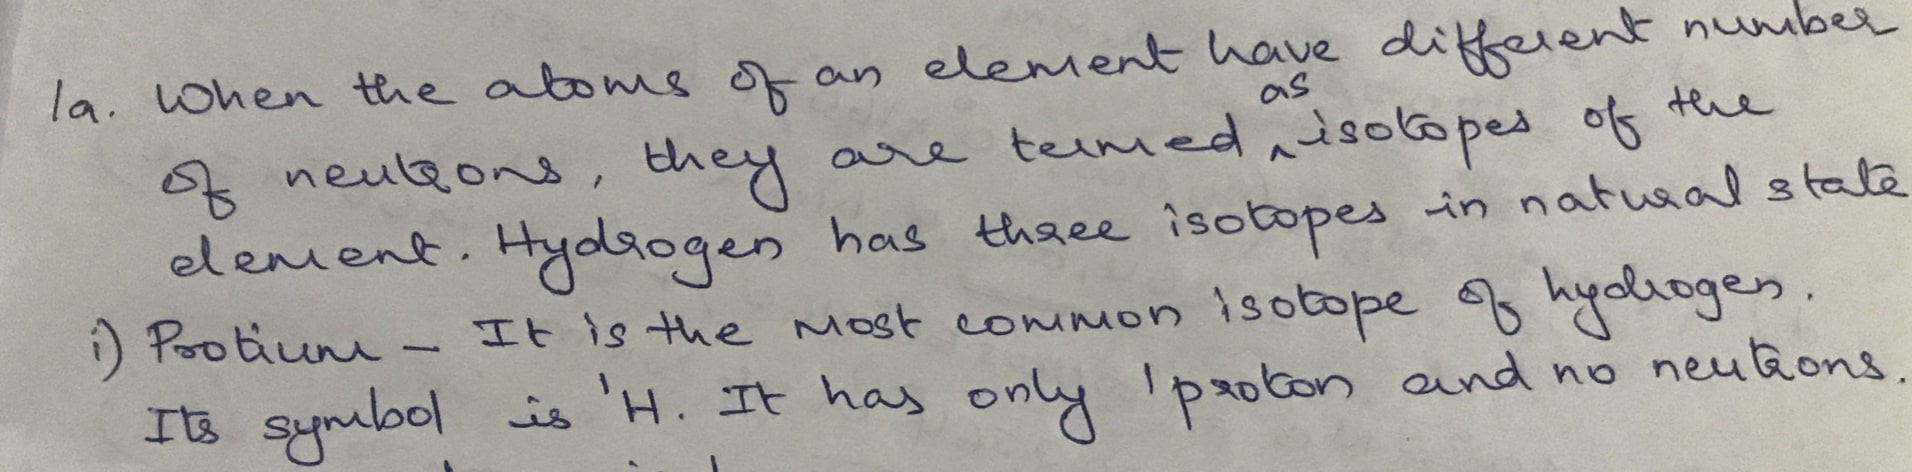 1a. When the atoms of an element have different number
of neutrons, they are termed ^as isotopes of the
element. Hydrogen has three isotopes in natural state
i) Protium - It is the most common isotope of hydrogen.
Its symbol is ¹H. It has only 1 proton and no neutrons.